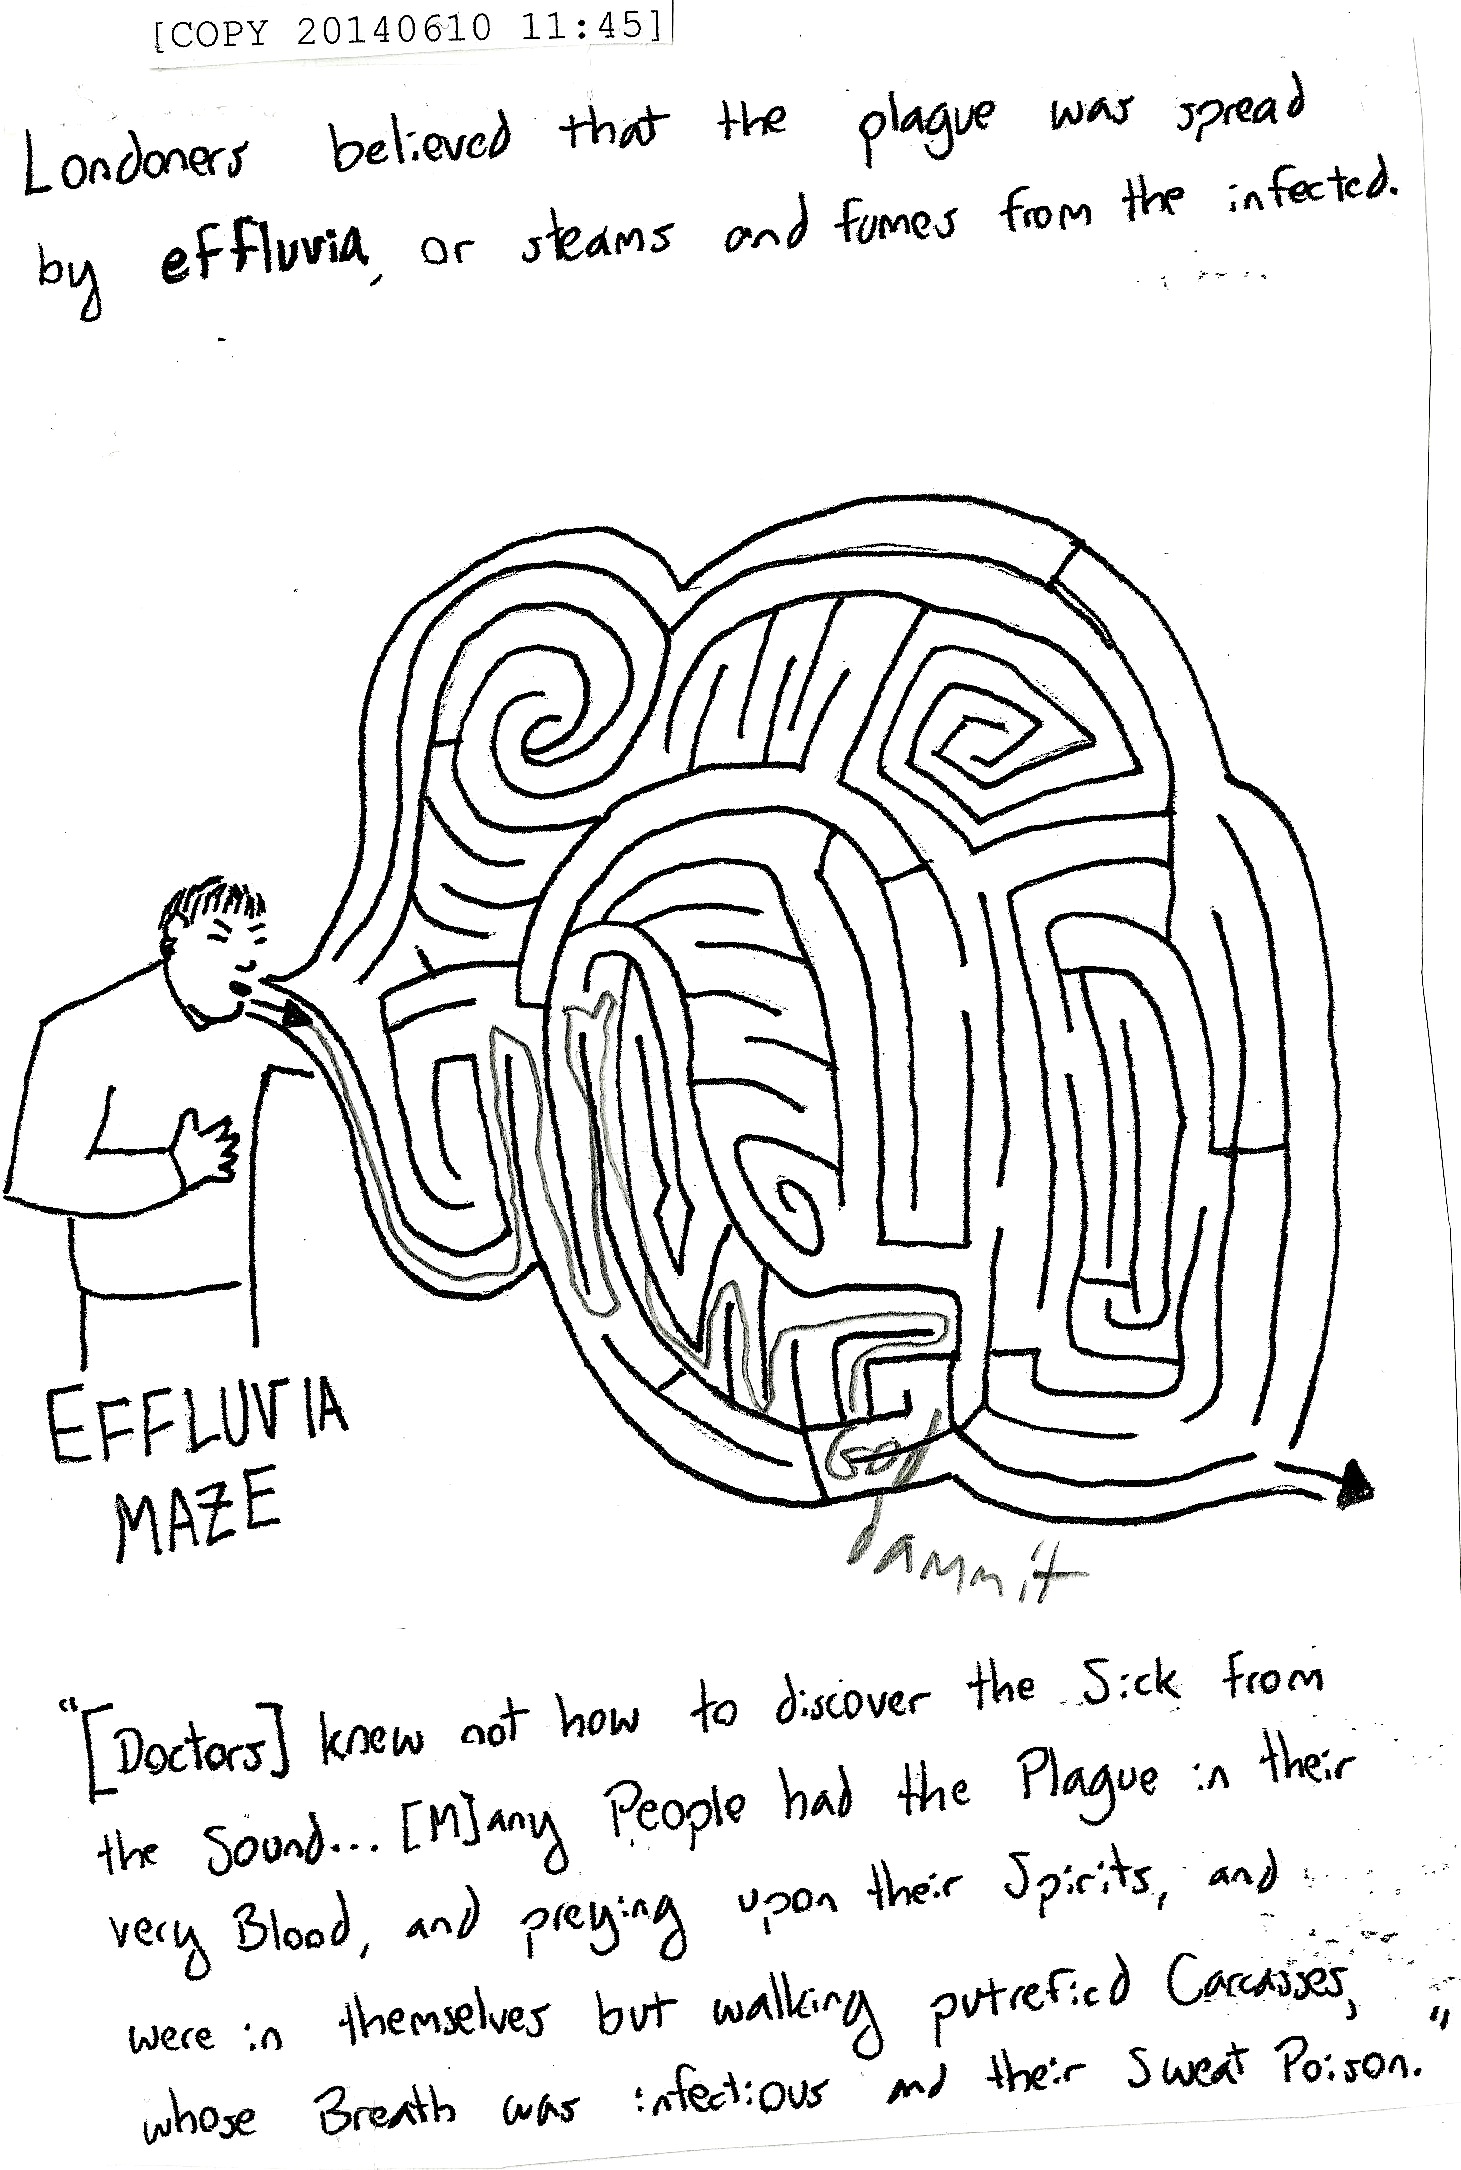 [COPY 20140610 11:45]
Londoners believed that the plague was spread
by effluvia, or steams and fumes from the infected.
EFFLUVIA
MAZE
God
dammit
"[Doctors] knew not how to discover the Sick from
the Sound... [M]any People had the Plague in their
very Blood, and preying upon their Spirits, and
were in themselves but walking putrefied Carcasses,
whose Breath was infectious and their Sweat Poison."